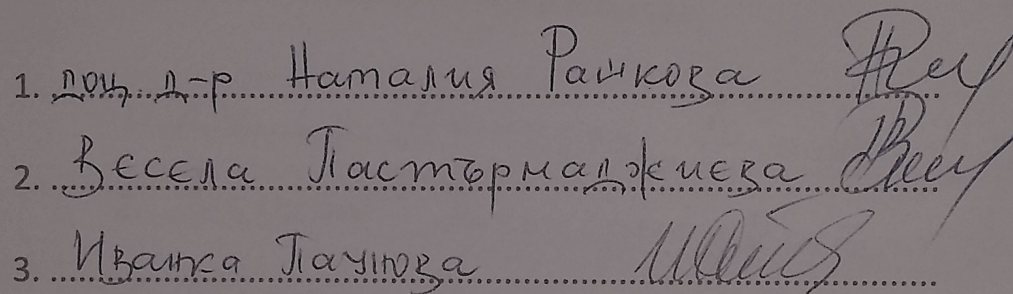 1. доц. д-р Наталия Райкова
2. Весела Пастърмаджиева
3. Иванка Паунова